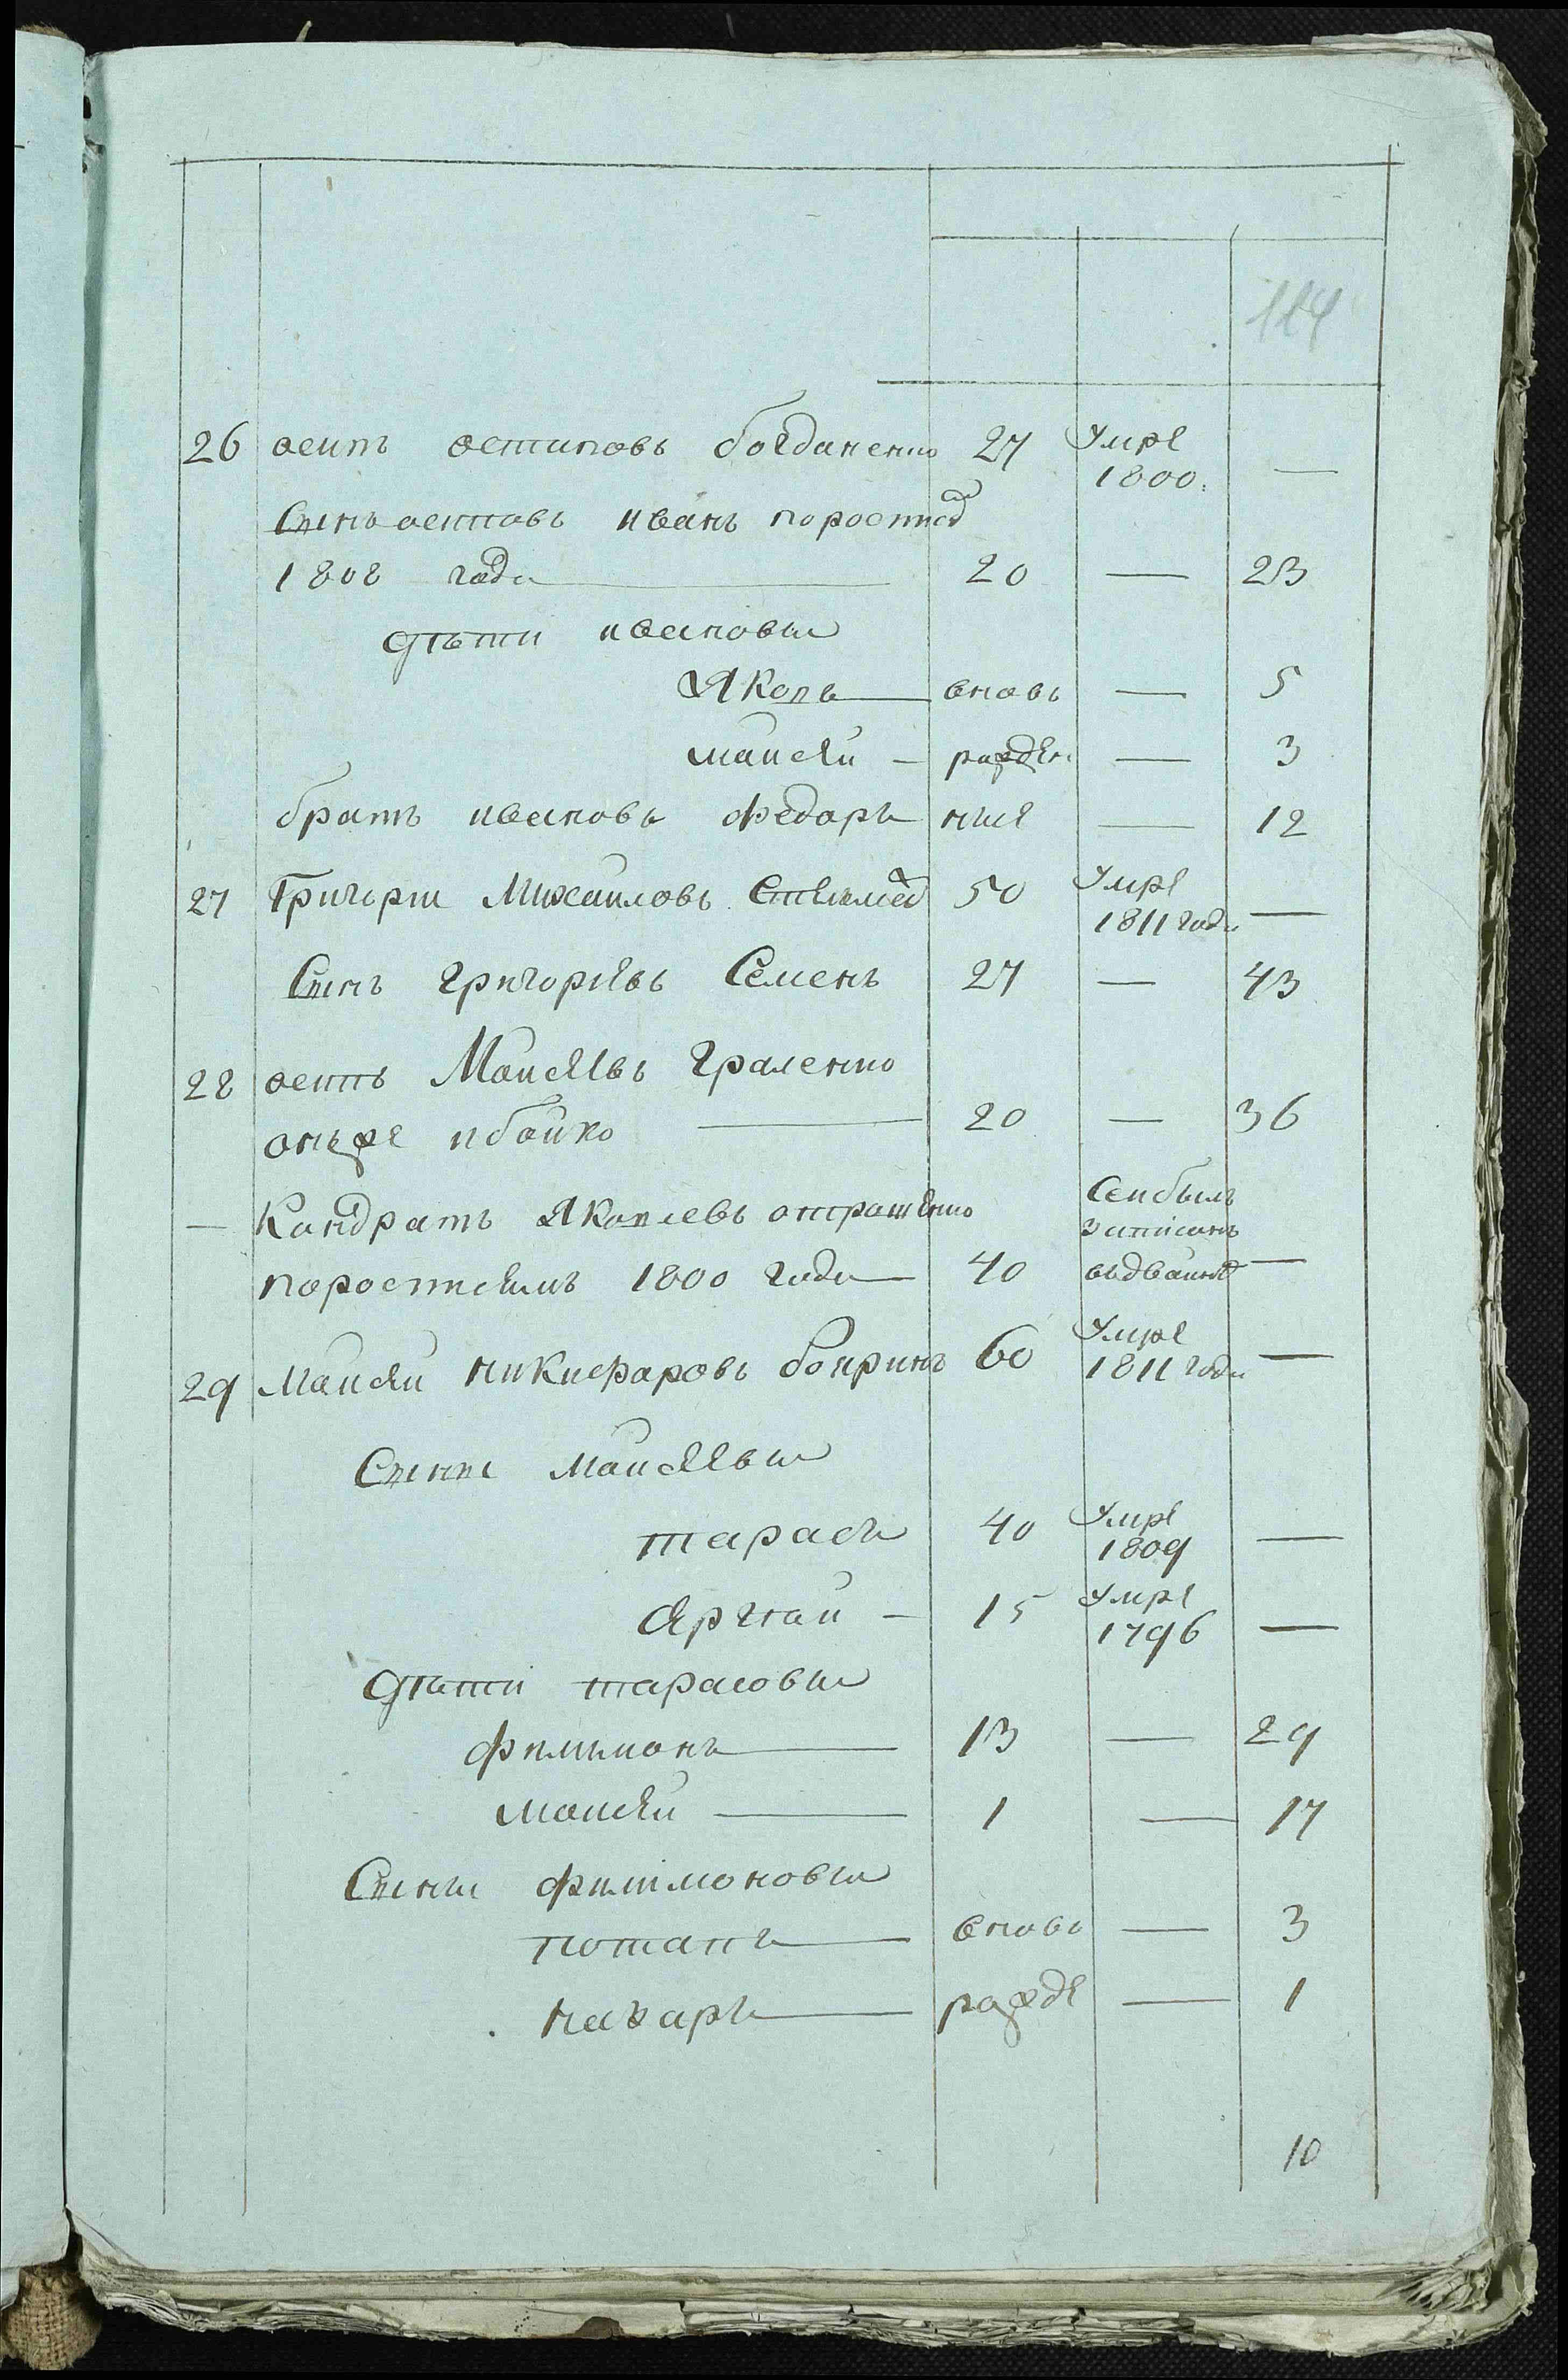 114
26 осипъ остиповъ богданенко 27 Умре 1800. —
Сынъ осиповъ иванъ
1808 года — 20 — 23
дѣти ивановы
Яковъ — вновь — 5
моисеи — рожден — 3
братъ ивановъ федоръ ные — 12
27 Григории Михаиловъ 50 Умре 1811 года —
Сынъ григорьевъ Семенъ 27 — 43
28 осипъ Моисеевъ Граленко
онже и боико — 20 — 36
— Кондратъ Яковлевъ
1800 года — 40 Сеи былъ записанъ —
29 Моисеи никифоровъ бояринъ 60 Умре 1811 года —
Сыны Моисеевы
тарасъ 40 Умре 1809 —
Сергеи — 15 Умре 1796 —
дѣти тарасовы
филимонъ — 13 — 29
Моисеи — 1 — 17
Сыны филимоновы
потапъ — вновь — 3
макаръ — рожде — 1
10